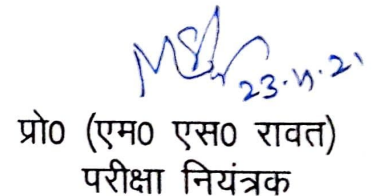 23.11.21
प्रो0 (एम0 एस0 रावत)
परीक्षा नियंत्रक